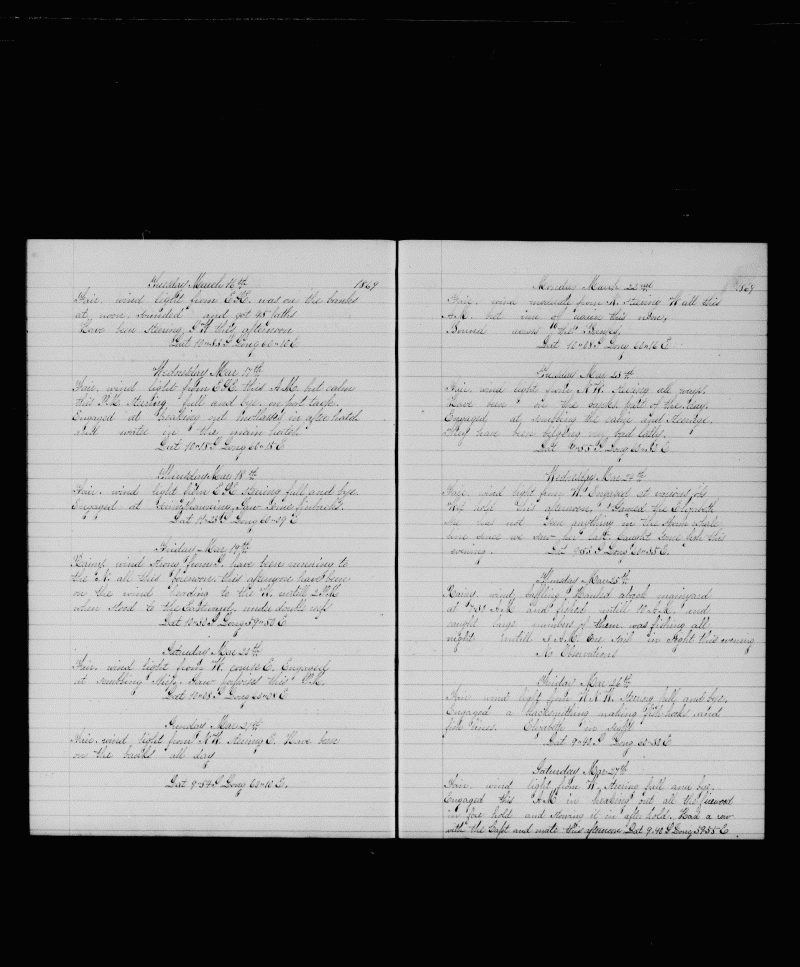 Tuesday March 16th 1869
Fair, wind light from E.S.E. was on the banks
at noon, sounded and got 45 faths
Have been steering S W this afternoon
Lat 10-35 S Long 60-10 E
Wednesday Mar 17th
Fair, wind light from E.S.E this A.M. but calm
this P.M. steering full and bye, in port tack.
Engaged at breaking out molasses in after hatch
salt water in the main hatch
Lat 10-18 S Long 60-18 E
Thursday Mar 18th
Fair, wind light from E.S.E. steering full and bye.
Engaged at Saw some finbacks.
Lat 11-25 S Long 60-27 E
Friday Mar 19th
Rainy, wind strong from S. have been running to
the N. all this forenoon, this afternoon have been
on the wind heading to the W. untill 2 P.M.
when stood to the Eastward, under double reefs
Lat 10-32 S Long 59-50 E
Saturday Mar 20th
Fair, wind light from W. course E. Engaged
at ship. Saw porpoises this P.M.
Lat 10-08 S Long 60-08 E
Sunday Mar 21st
Fair, wind light from N.W. steering E. Have been
on the banks all day
Lat 9-54 S Long 60-10 E.
Monday March 22nd 1869
Fair, wind moderate from N. steering W all this
A.M. but none of again this noon.
Lat 10-08 S Long 60-16 E
Tuesday Mar 23th
Fair, wind light from N.W. steering all ways.
Have been on the banks part of the day.
Engaged at the cabin and steerage.
They have been very bad lately.
Lat 9-55 S Long 60- E
Wednesday Mar 24th
Fair, wind light from W. Engaged at various jobs
this afternoon, Gamed the Elizabeth
she has not seen anything in the Sperm whale
line since we saw her last. Caught some fish this
evening. Lat 9-53 S Long 60-35 E.
Thursday Mar 25th
Rainy, wind baffling. Hauled aback mainyard
at 7.30 A.M. and fished untill 10 A.M. and
caught large numbers of them. was fishing all
night untill 3 A.M. One sail in sight this evening
No Observations
Friday Mar 26th
Fair, wind light from W.N.W. steering full and bye,
Engaged a blacksmithing making fish hooks and
fish lines. Elizabeth in sight
Lat 9-40 S Long 60-30 E
Saturday Mar 27th
Fair, wind light from W. steering full and bye.
Engaged this A.M. in breaking out all the firewood
in fore hold and stowing it in after hold. Had a row
with the Capt and mate this afternoon Lat 9.40 S Long 59 55 E